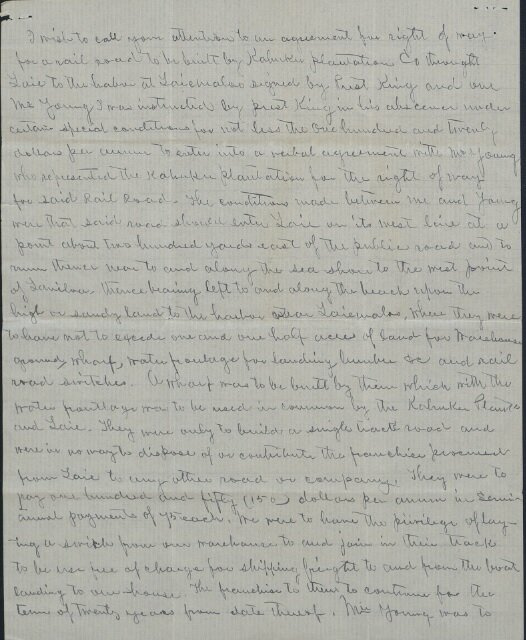 I wish to call your attention to an agreement for right of way
for a rail road to be built by Kahuku Plantation Co through
Laie to the habor at Laiemaloo signed by Prest King and one
Mr Young I was instructed by Prest King in his absence under
certain special conditions for not less the One hundred and twenty
dollars per annum to enter into a verbal agreement with Mr Young
who represented the Kahuku Plantation for the right of way
for said Rail Road. The conditions made between me and Young
were that said road should enter Laie on its west line at a
point about two hundred yards east of the public road and to
run thence near to and along the sea shore to the west point
of Laniloa thence bearing left to and along the beach upon the
high or sandy land to the harbor near Laiemaloo, where they were
to have not to excede one and one half acres of land for Warehouse
ground, wharf, water frontage for landing lumber &c and rail
road switches. A wharf was to be built by them which with the
water frontage was to be used in common by the Kahuku Plantn
and Laie. They were only to build a single track road and
were in no way to dispose of or contribute the franchise procured
from Laie to any other road or company. They were to
pay one hundred and fifty (150) dollars per annum in Semi-
anual payments of 75 each. We were to have the privilege of lay-
ing a switch from our warehouse to and join in their track
to be use free of charge for shipping freight to and from the boat
landing to our house. The franchise to them to continue for the
term of twenty years from date thereof. Mr Young was to